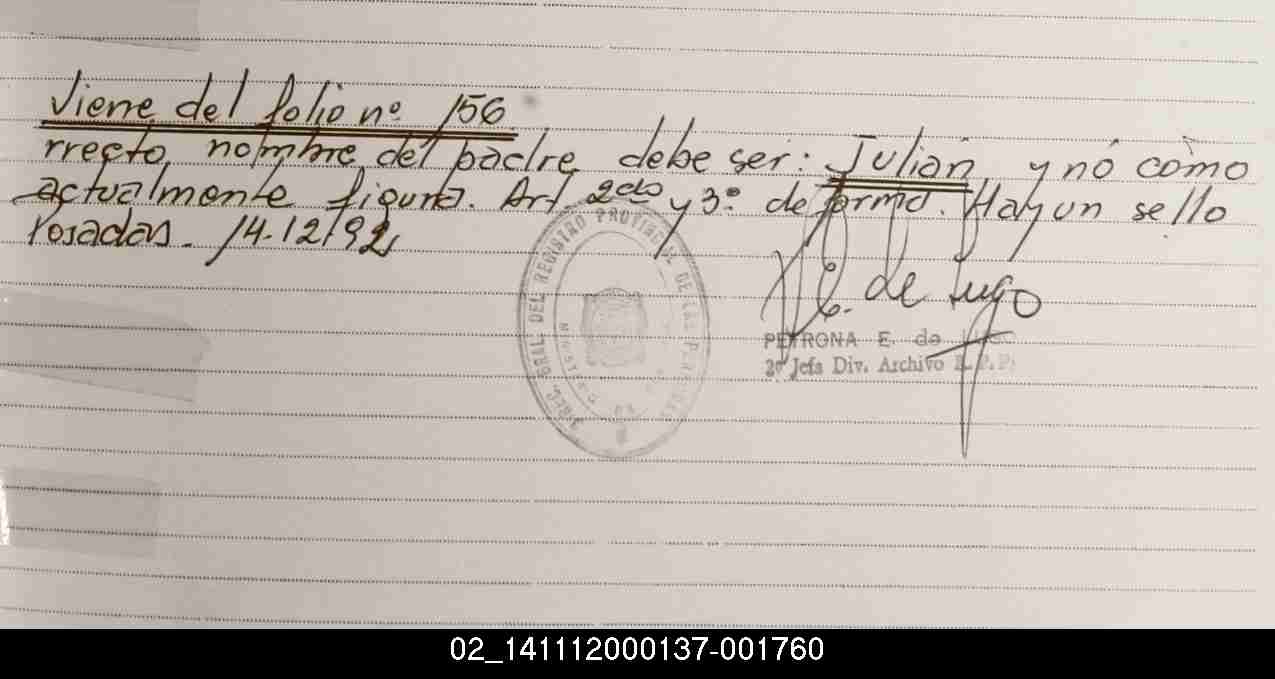 Viene del folio nº 156
rrecto nombre del padre debe ser: Julian y nó como
actualmente figura. Art. 2do y 3º de forma. Hay un sello
Posadas. 14-12/92
DIREC. GRAL. DEL REGISTRO PROVINCIAL DE LAS PERSONAS
E. de Lugo
PETRONA E. de LUGO
2º Jefa Div. Archivo R. P. P.
02_141112000137-001760